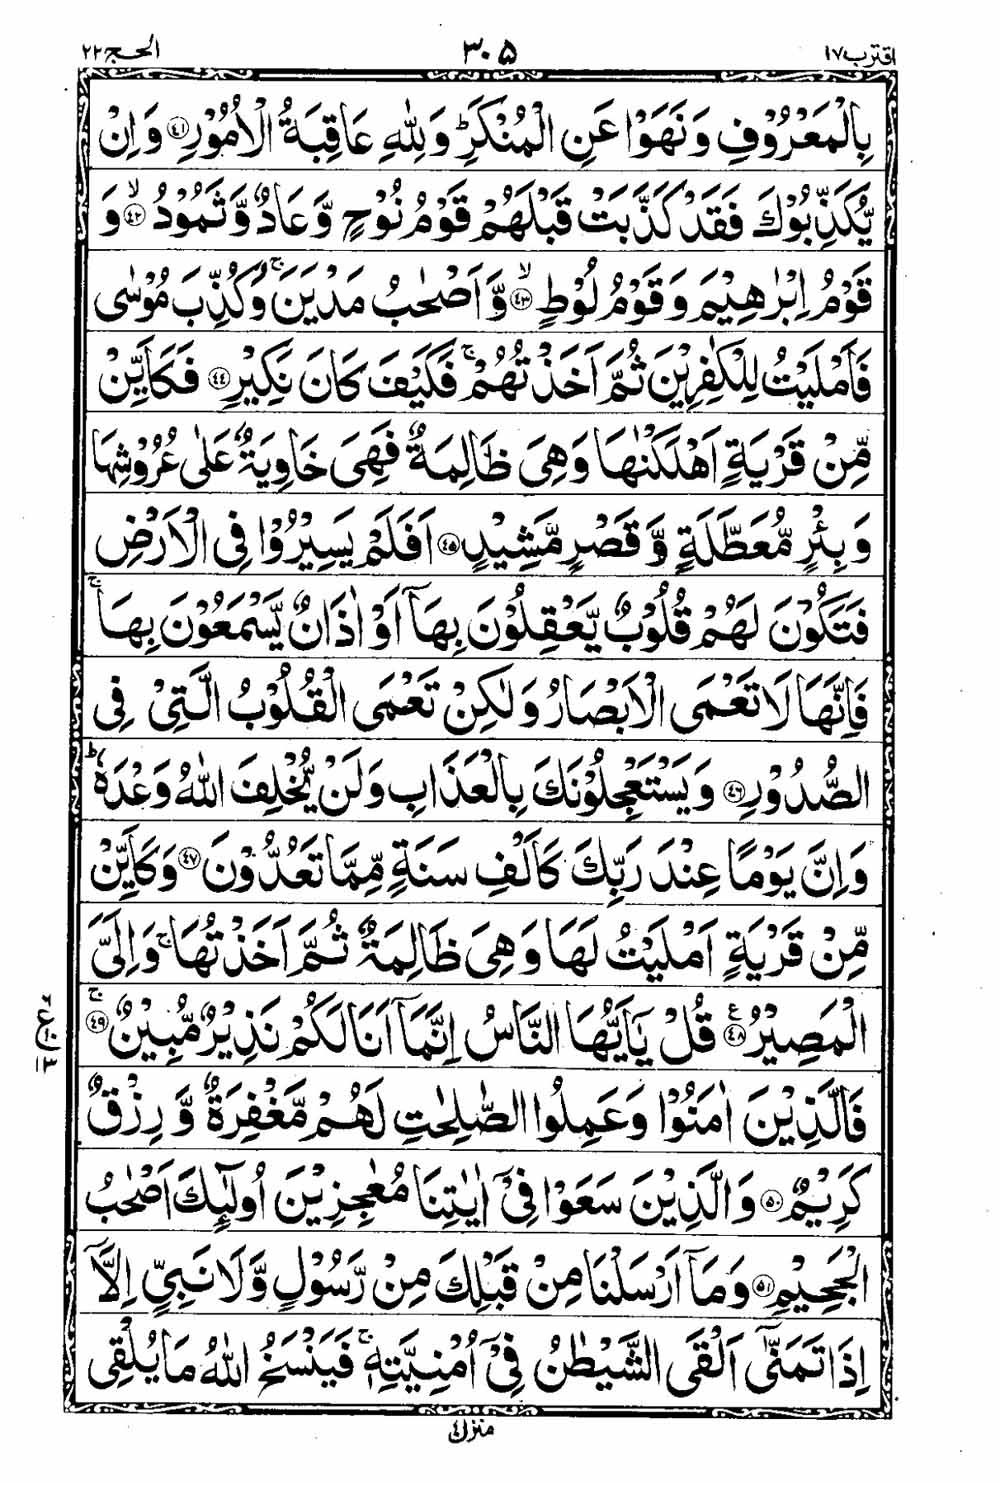 اقترب ١٧ ٣٠٥ الحج ٢٢
بِالْمَعْرُوْفِ وَنَهَوْا عَنِ الْمُنْكَرِ ؕ وَلِلّٰهِ عَاقِبَةُ الْاُمُوْرِ ﴿۴۱﴾ وَاِنْ
يُّكَذِّبُوْكَ فَقَدْ كَذَّبَتْ قَبْلَهُمْ قَوْمُ نُوْحٍ وَّعَادٌ وَّثَمُوْدُ ﴿۴۲﴾ۙ وَ
قَوْمُ اِبْرٰهِيْمَ وَقَوْمُ لُوْطٍ ﴿۴۳﴾ۙ وَّاَصْحٰبُ مَدْيَنَ ۚ وَكُذِّبَ مُوْسٰى
فَاَمْلَيْتُ لِلْكٰفِرِيْنَ ثُمَّ اَخَذْتُهُمْ ۚ فَكَيْفَ كَانَ نَكِيْرِ ﴿۴۴﴾ فَكَاَيِّنْ
مِّنْ قَرْيَةٍ اَهْلَكْنٰهَا وَهِىَ ظَالِمَةٌ فَهِىَ خَاوِيَةٌ عَلٰى عُرُوْشِهَا
وَبِئْرٍ مُّعَطَّلَةٍ وَّقَصْرٍ مَّشِيْدٍ ﴿۴۵﴾ اَفَلَمْ يَسِيْرُوْا فِى الْاَرْضِ
فَتَكُوْنَ لَهُمْ قُلُوْبٌ يَّعْقِلُوْنَ بِهَاۤ اَوْ اٰذَانٌ يَّسْمَعُوْنَ بِهَا ۚ
فَاِنَّهَا لَا تَعْمَى الْاَبْصَارُ وَلٰكِنْ تَعْمَى الْقُلُوْبُ الَّتِىْ فِى
الصُّدُوْرِ ﴿۴۶﴾ وَيَسْتَعْجِلُوْنَكَ بِالْعَذَابِ وَلَنْ يُّخْلِفَ اللّٰهُ وَعْدَهٗ ؕ
وَاِنَّ يَوْمًا عِنْدَ رَبِّكَ كَاَلْفِ سَنَةٍ مِّمَّا تَعُدُّوْنَ ﴿۴۷﴾ وَكَاَيِّنْ
مِّنْ قَرْيَةٍ اَمْلَيْتُ لَهَا وَهِىَ ظَالِمَةٌ ثُمَّ اَخَذْتُهَا ۚ وَاِلَىَّ
الْمَصِيْرُ ﴿۴۸﴾ قُلْ يٰۤاَيُّهَا النَّاسُ اِنَّمَاۤ اَنَا لَكُمْ نَذِيْرٌ مُّبِيْنٌ ﴿۴۹﴾ۚ
فَالَّذِيْنَ اٰمَنُوْا وَعَمِلُوا الصّٰلِحٰتِ لَهُمْ مَّغْفِرَةٌ وَّرِزْقٌ
كَرِيْمٌ ﴿۵۰﴾ وَالَّذِيْنَ سَعَوْا فِىْۤ اٰيٰتِنَا مُعٰجِزِيْنَ اُولٰٓئِكَ اَصْحٰبُ
الْجَحِيْمِ ﴿۵۱﴾ وَمَاۤ اَرْسَلْنَا مِنْ قَبْلِكَ مِنْ رَّسُوْلٍ وَّلَا نَبِىٍّ اِلَّاۤ
اِذَا تَمَنّٰىۤ اَلْقَى الشَّيْطٰنُ فِىْۤ اُمْنِيَّتِهٖ ۚ فَيَنْسَخُ اللّٰهُ مَا يُلْقِى
منزل ٤